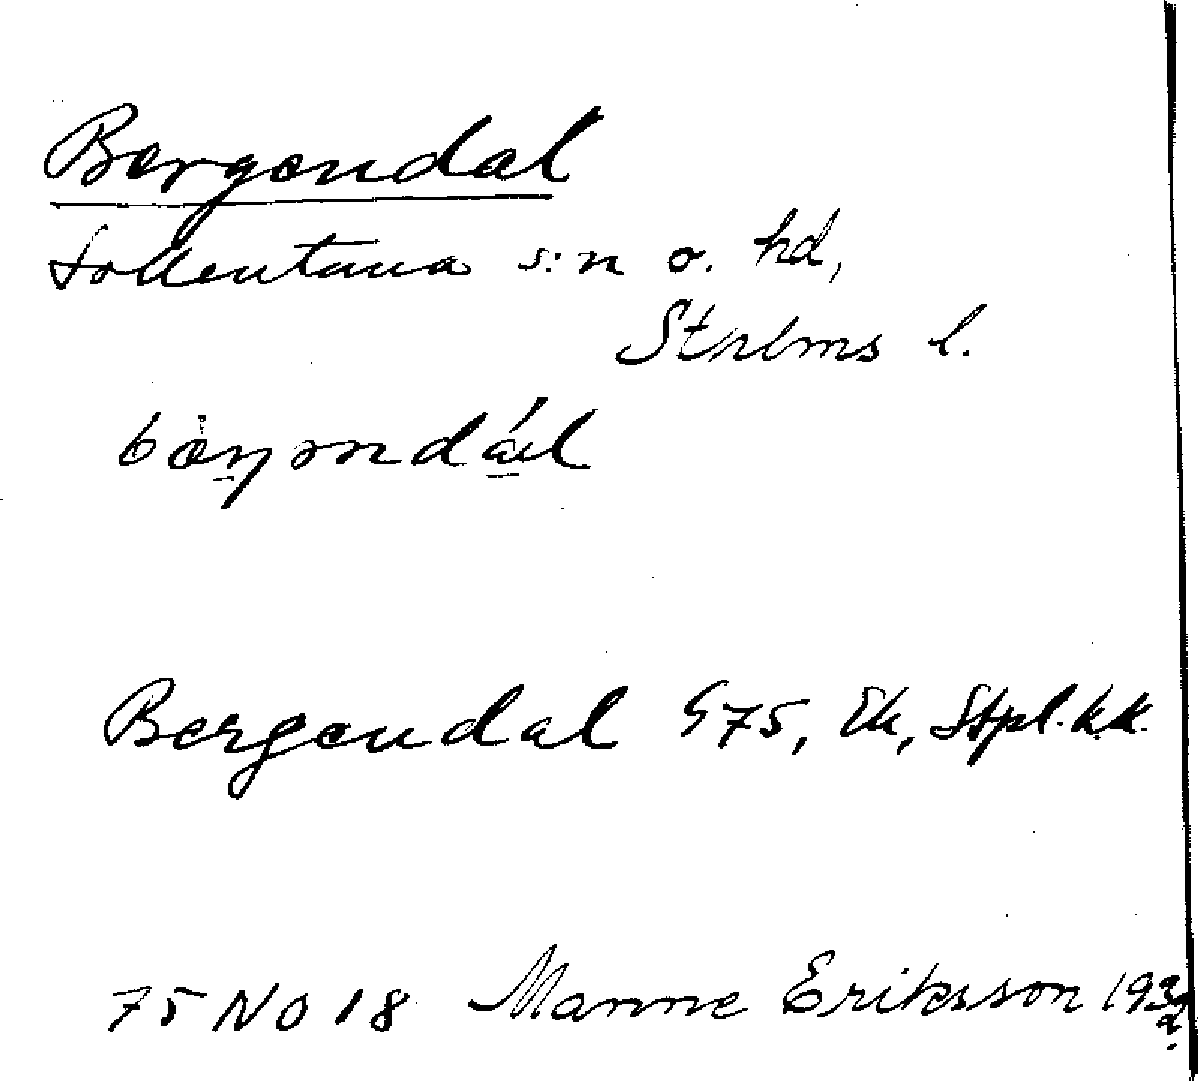 Bergendal
Sollentuna s:n o. hd,
Sthlms l.
Bergendal G75, Ek, Stpl.kk.
75 NO 18 Manne Eriksson 193